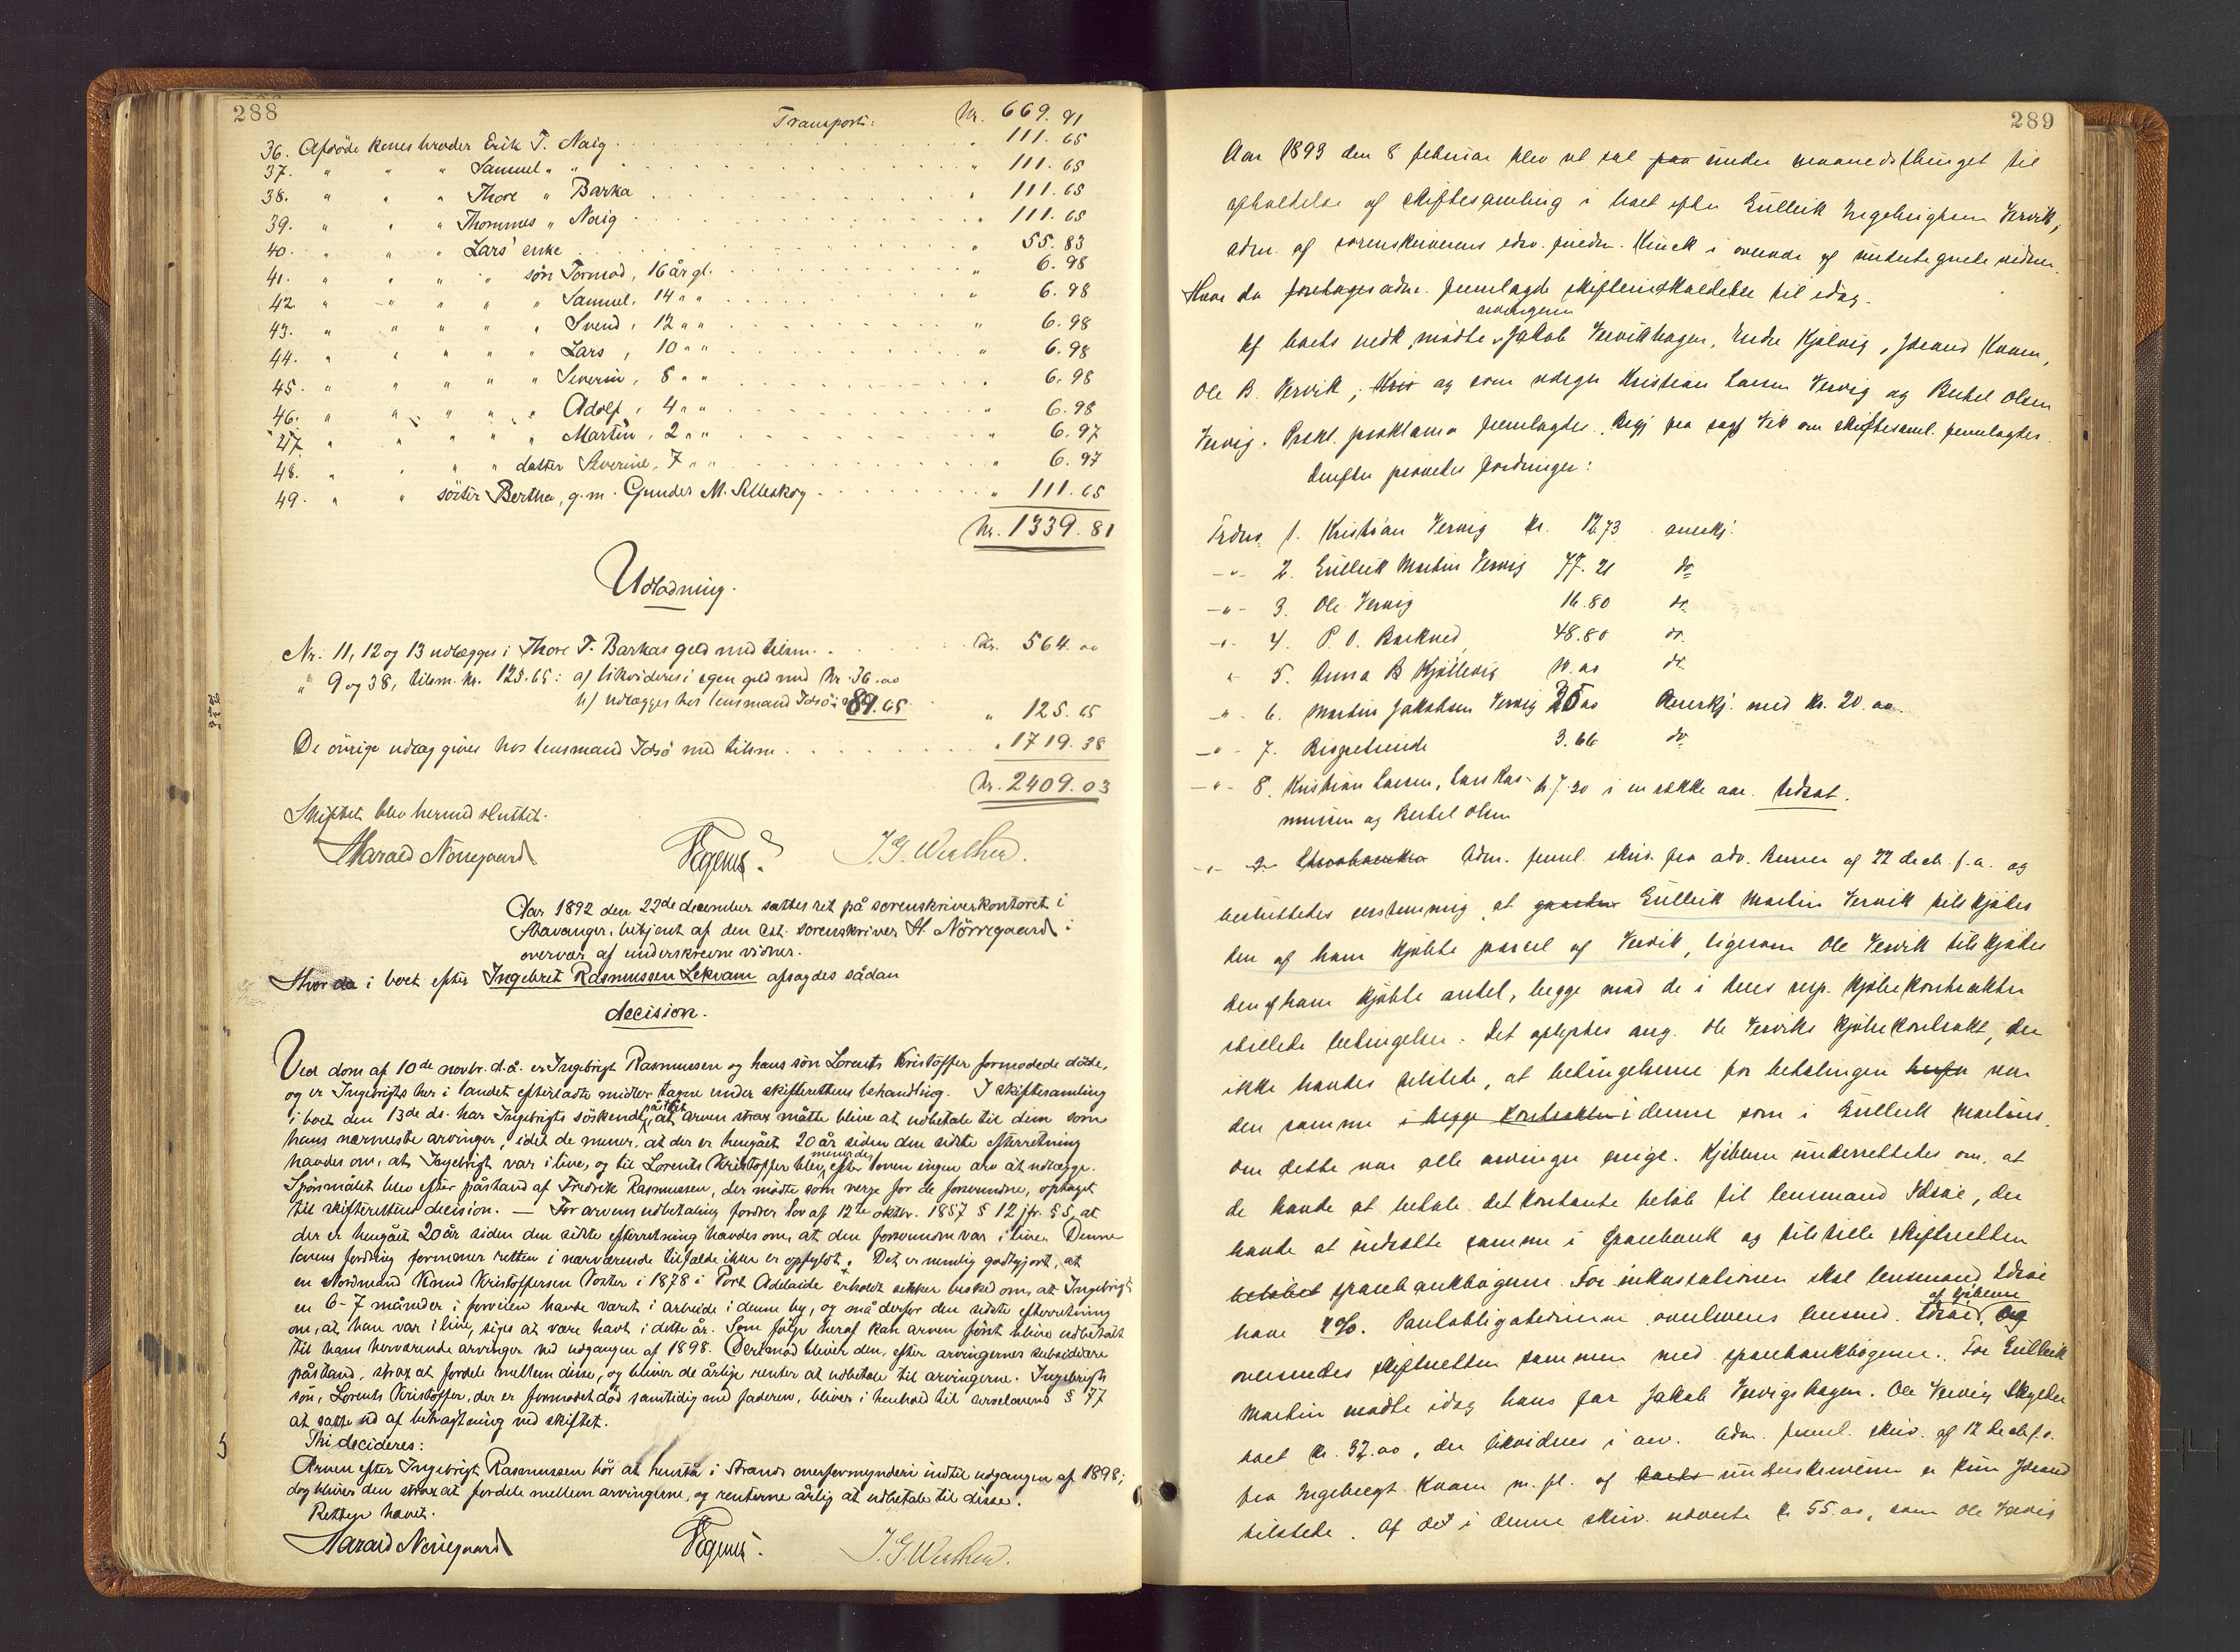 288
Transport: Kr. 669. 91
36. Afdöde kones broder Erik T. Naig . . . " 111. 65
37. " " " Samuel " " . . . " 111. 65
38. " " " Thore " Barka . . . " 111. 65
39. " " " Thommes " Naig . . . " 111. 65
40. " " " Lars' enke . . . " 55. 83
41. " " " " sön Tormod, 16 år gl. . . . " 6. 98
42. " " " " " Samuel, 14 " " . . . " 6. 98
43. " " " " " Svend, 12 " " . . . " 6. 98
44. " " " " " Lars, 10 " " . . . " 6. 98
45. " " " " " Severin, 8 " " . . . " 6. 98
46. " " " " " Adolf, 4 " " . . . " 6. 98
47. " " " " " Martin, 2 " " . . . " 6. 97
48. " " " " datter Severine, 7 " " . . . " 6. 97
49. " " söster Bertha, g. m. Gunder M. Selleskog . . . " 111. 65
Kr. 1339. 81
Udlodning.
Nr. 11, 12 og 13 udlægges i Thore T. Barkas geld med tilsm. . . Kr. 564. 00
" 9 og 38, tilsm. kr. 125.65: a/ likvideres i egen geld med Kr. 36.00
b/ udlægges hos lensmand Idsö: " 89.65 " 125. 65
De övrige udlæg gives hos lensmand Idsö med tilsm . . . " 1719. 38
Kr. 2409. 03
Skiftet blev hermed sluttet.
Harald Nörregaard Tegner. J. G. Walther.
Aar 1892 den 22de december sattes ret på sorenskriverkontoret i
Stavanger, betjent af den cst. sorenskriver H. Nörregaard i
overvær af underskrevne vidner.
Hvor da i boet efter Ingebret Rasmussen Lekvam afsagdes sådan
decision.
Ved dom af 10de novbr. d. å. er Ingebrigt Rasmussen og hans sön Lorents Kristoffer formodede döde,
og er Ingebrigts her i landet efterladte midler tagne under skifterettens behandling. I skiftesamling
i boet den 13de ds. har Ingebrigts söskende påstået, at arven strax måtte blive at udbetale til dem som
hans nærmeste arvinger, idet de mener, at der er hengået 20 år siden den sidste efterretning
havdes om, at Ingebrigt var i live, og til Lorents Kristoffer blev, menerdes, efter loven ingen arv at udlægge.
Spörsmålet blev efter påstand af Fredrik Rasmussen, der mödte som verge for de forsvundne, optaget
til skifterettens decision. — For arvens udbetaling fordrer lov af 12te oktbr. 1857 § 12 jfr. § 5, at
der er hengået 20 år siden den sidste efterretning havdes om, at den forsvundne var i live. Denne
lovens fordring formener retten i nærværende tilfælde ikke er opfyldt. Det er nemlig godtgjort, at
en Nordmand Knud Kristoffersen Voster i 1878 i Port Adelaide erholdt sikker besked om, at Ingebrigt
en 6-7 måneder i forveien havde været i arbeide i denne by, og må derfor den sidste efterretning
om, at han var i live, siges at være havt i dette år. Som fölge heraf kan arven först blive udbetalt
til hans herværende arvinger ved udgangen af 1898. Derimod bliver den, efter arvingernes subsidiære
påstand, strax at fordele mellem disse, og bliver de årlige renter at udbetale til arvingerne. Ingebrigts
sön, Lorents Kristoffer, der er formodet död samtidig med faderen, bliver i henhold til arvelovens § 77
at sætte ud af betragtning ved skiftet.
Thi decideres:
Arven efter Ingebrigt Rasmussen bör at henstå i Strands overformynderi indtil udgangen af 1898;
dog bliver den strax at fordele mellem arvingerne, og renterne årlig at udbetale til disse.
Retten hævet.
Harald Nörregaard Tegner. J. G. Walther.
289
Aar 1893 den 8 februar blev ret sat paa under maanedsthinget til
afholdelse af skiftesamling i boet efter Gulleik Ingebrigtsen Vervik,
adm. af sorenskriverens edsv. fuldm. Kinck i overvær af undertegnede vidner.
Hvor da foretoges adm. fremlagde skifteindkaldelse til idag.
Af boets vedk. mödte arvingerne Jakob Vervikhagen, Endre Kjölvig, Jorand Kvam,
Ole B. Vervik, Kris og som verger Kristian Larsen Vervig og Bertel Olsen
Vervig. Prokl. proklama fremlagdes. Begj fra sagf Vik om skiftesaml. fremlagdes.
Derefter prövedes fordringer:
Frdrs. 1. Kristian Vervig kr. 12.73 anerkj.
-"- 2. Gulleik Martin Vervig 77. 21 do
-"- 3. Ole Vervig 16.80 do.
-"- 4. P. O. Barkved 48.80 do.
" 5. Anna B Kjöllevig 10.00 do.
-"- 6. Martin Jakobsen Vervig 25.00 Anerkj. med kr. 20.00.
-"- 7. 3.66 do
-"- 8. Kristian Larsen, Lars Ras- kr. 7.20 i en række aar. Udsat.
mussen og Bertel Olsen
-"- 9. Adm. freml. skriv. fra adv. af 22 decb. f. a. og
besluttedes enstemmig, at gaarden Gulleik Martin Vervik tilskjödes
den af ham kjöbte parcel af Vervik, ligesom Ole Vervik tilskjödes
den af ham kjöbte andel, begge mod de i deres resp. kjöbekontrakter
stillede betingelser. Det oplystes ang. Ole Verviks kjöbekontrakt, der
ikke havdes tilstede, at betingelserne for betalingen herfor var
den samme i begge kontrakter i denne som i Gulleik Martins.
Om dette var alle arvinger enige. Kjöberne underrettedes om, at
de havde at betale det kontante belöb til lensmand Idsöe, der
havde at indsætte samme i Sparebank og tilstille skifteretten
belöbet sparebankbögerne. For inkassationen skal lensmand Idsöe
have 4 %. Panteobligationerne overleveres lensmd. Idsöe, af kjöberne og
oversendes skifteretten sammen med sparebankbögerne. For Gullleik
Martin mödte idag hans far Jakob Vervigshagen. Ole Vervig skylder
boet kr. 32.00, der likvideres i arv. Adm. freml. skriv. af 12 decb. f. a.
fra Ingebregt Kvam m. fl. af boets underskriverne er kun Jorand
tilstede. Af det i denne skriv. nævnte kr. 55.00, som Ole Vervig